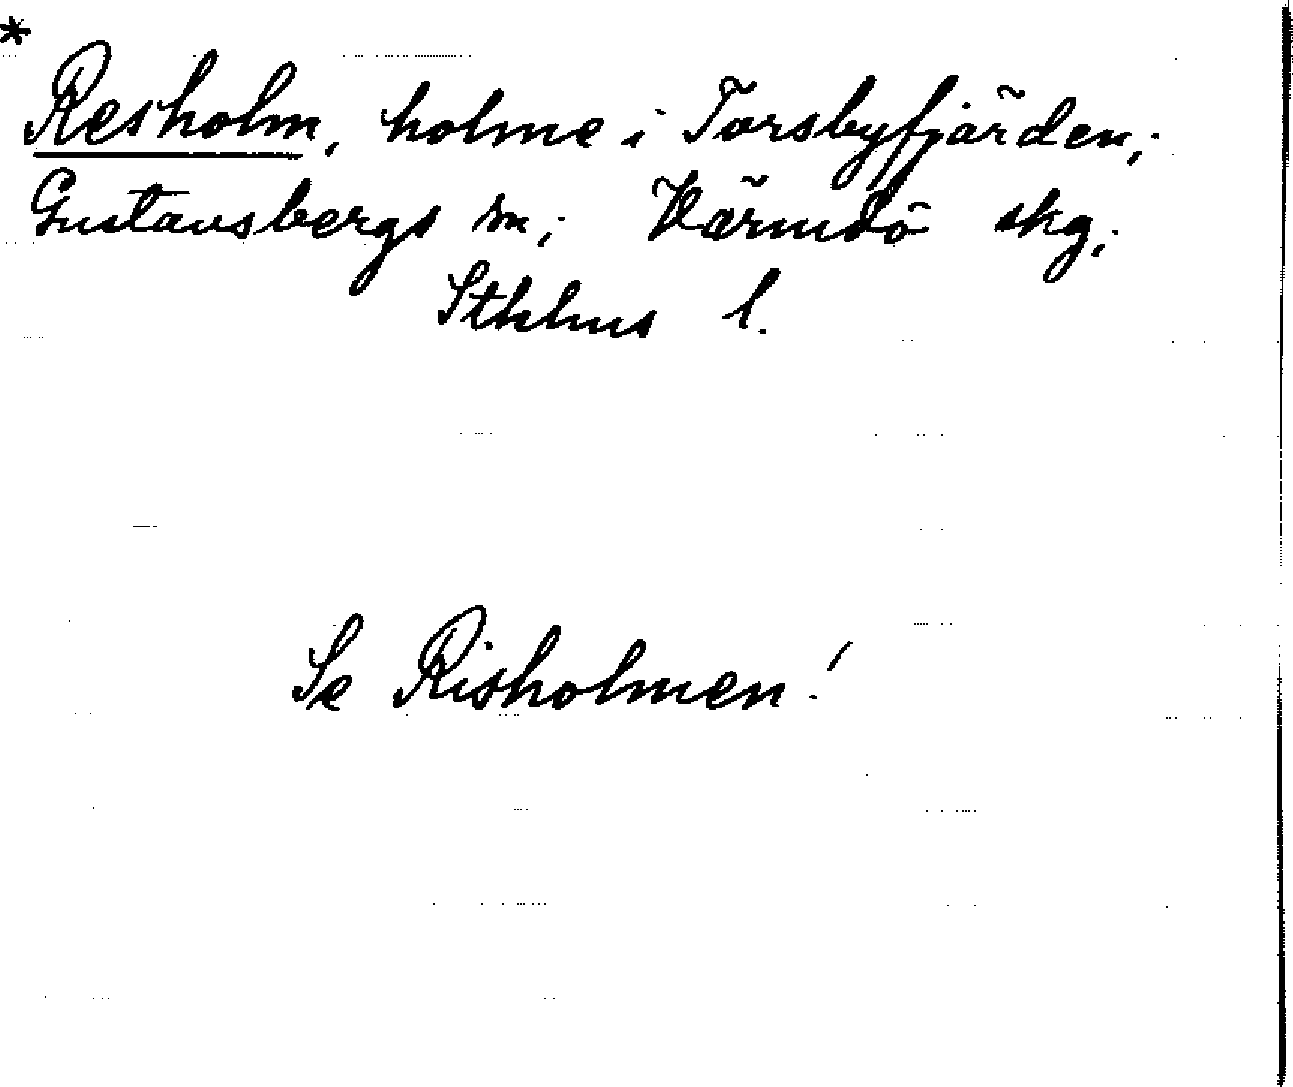 *
Resholm, holme i Torsbyfjärden;
Gustavsbergs sn; Värmdö skg;
Sthlms l.
Se Risholmen!